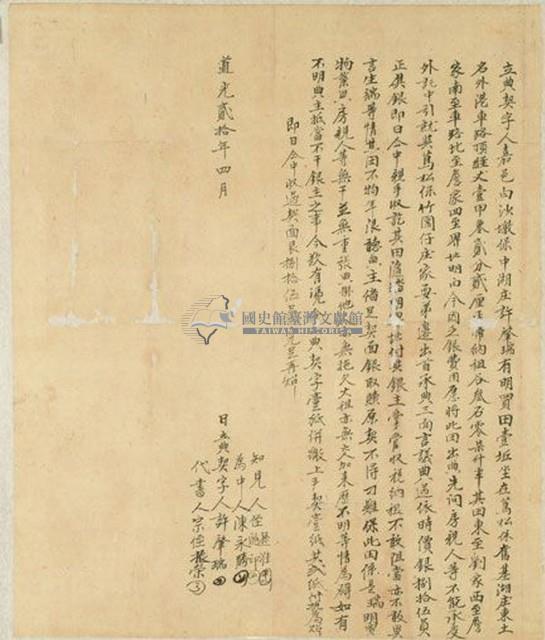 立典契字人嘉邑白沙墩保中湖庄許肇瑞有明買田壹坵坐在蔦松保舊基湖庄東土
名外湖車路頂經丈壹甲叁貳分貳厘正帶納租谷叁石零柒升半其田東至劉家西至詹
家南至車路北至詹家四至界址明白今因乏銀費用愿將此田出典先問房親人等不能承受
外託中引就與蔦松保竹圍仔庄家要弟邊出首承典三面言議典過依時價銀捌拾伍員
正庚銀即日仝中親手收訖其田隨踏明界址付與銀主掌管收稅納租不敢阻當亦不敢異
言生端等情其田不拘年限聽典主備足契面銀取贖原契不得刁難保此田係是瑞明買
物業與房親人等無干並無重張典掛他人亦無拖欠大租亦無交加來歷不明等情為碍如有
不明典主抵當不干銀主之事今欲有憑立典契字壹紙併繳上手契壹紙共貳紙付執為炤
即日仝中收過契面銀捌拾伍員完足再炤
道光貳拾年四月 日立典契字人許肇瑞
知見人侄
為中人陳永勝
代書人宗侄振榮
國史館臺灣文獻館
TAIWAN HISTORICA